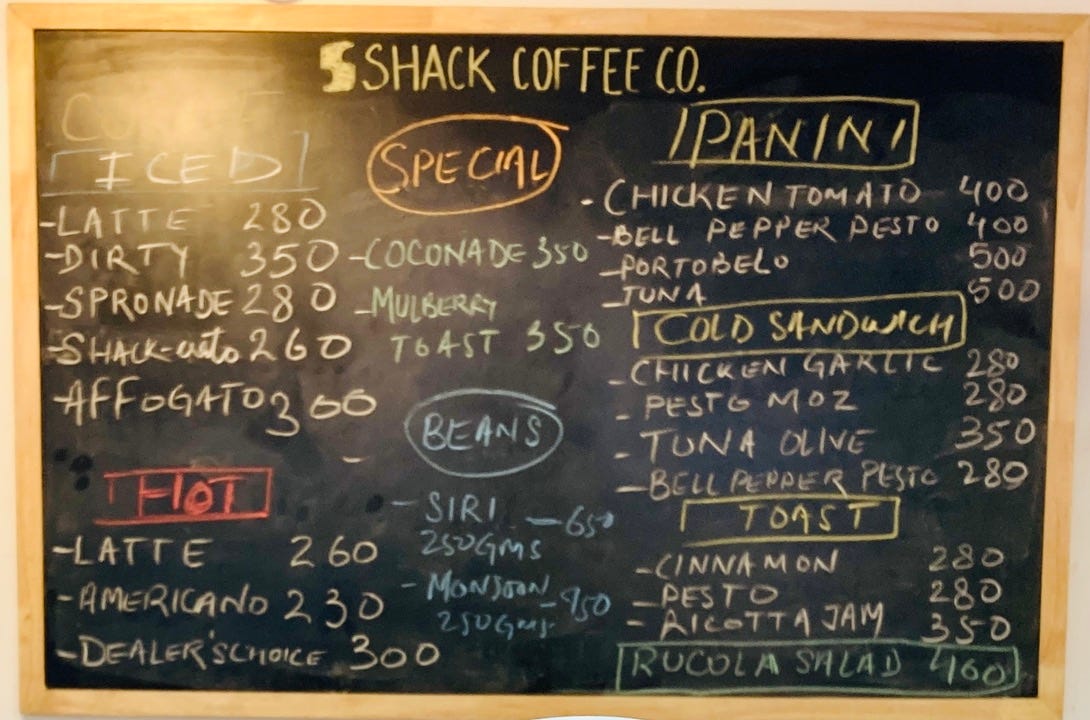 SHACK COFFEE CO.
ICED
-LATTE 280
-DIRTY 350
-SPRONADE 280
-SHACK-uato 260
-AFFOGATO 300
HOT
-LATTE 260
-AMERICANO 230
-DEALER'S CHOICE 300
SPECIAL
-COCONADE 350
-MULBERRY
TOAST 350
BEANS
- SIRI - 650
250GMS
- MONSOON
250GMS
PANINI
-CHICKEN TOMATO 400
-BELL PEPPER PESTO 400
-PORTOBELO 500
-TUNA 500
COLD SANDWICH
-CHICKEN GARLIC 280
- PESTO MOZ 280
- TUNA OLIVE 350
-BELL PEPPER PESTO 280
TOAST
-CINNAMON 280
-PESTO 280
- RICOTTA JAM 350
RUCOLA SALAD 400